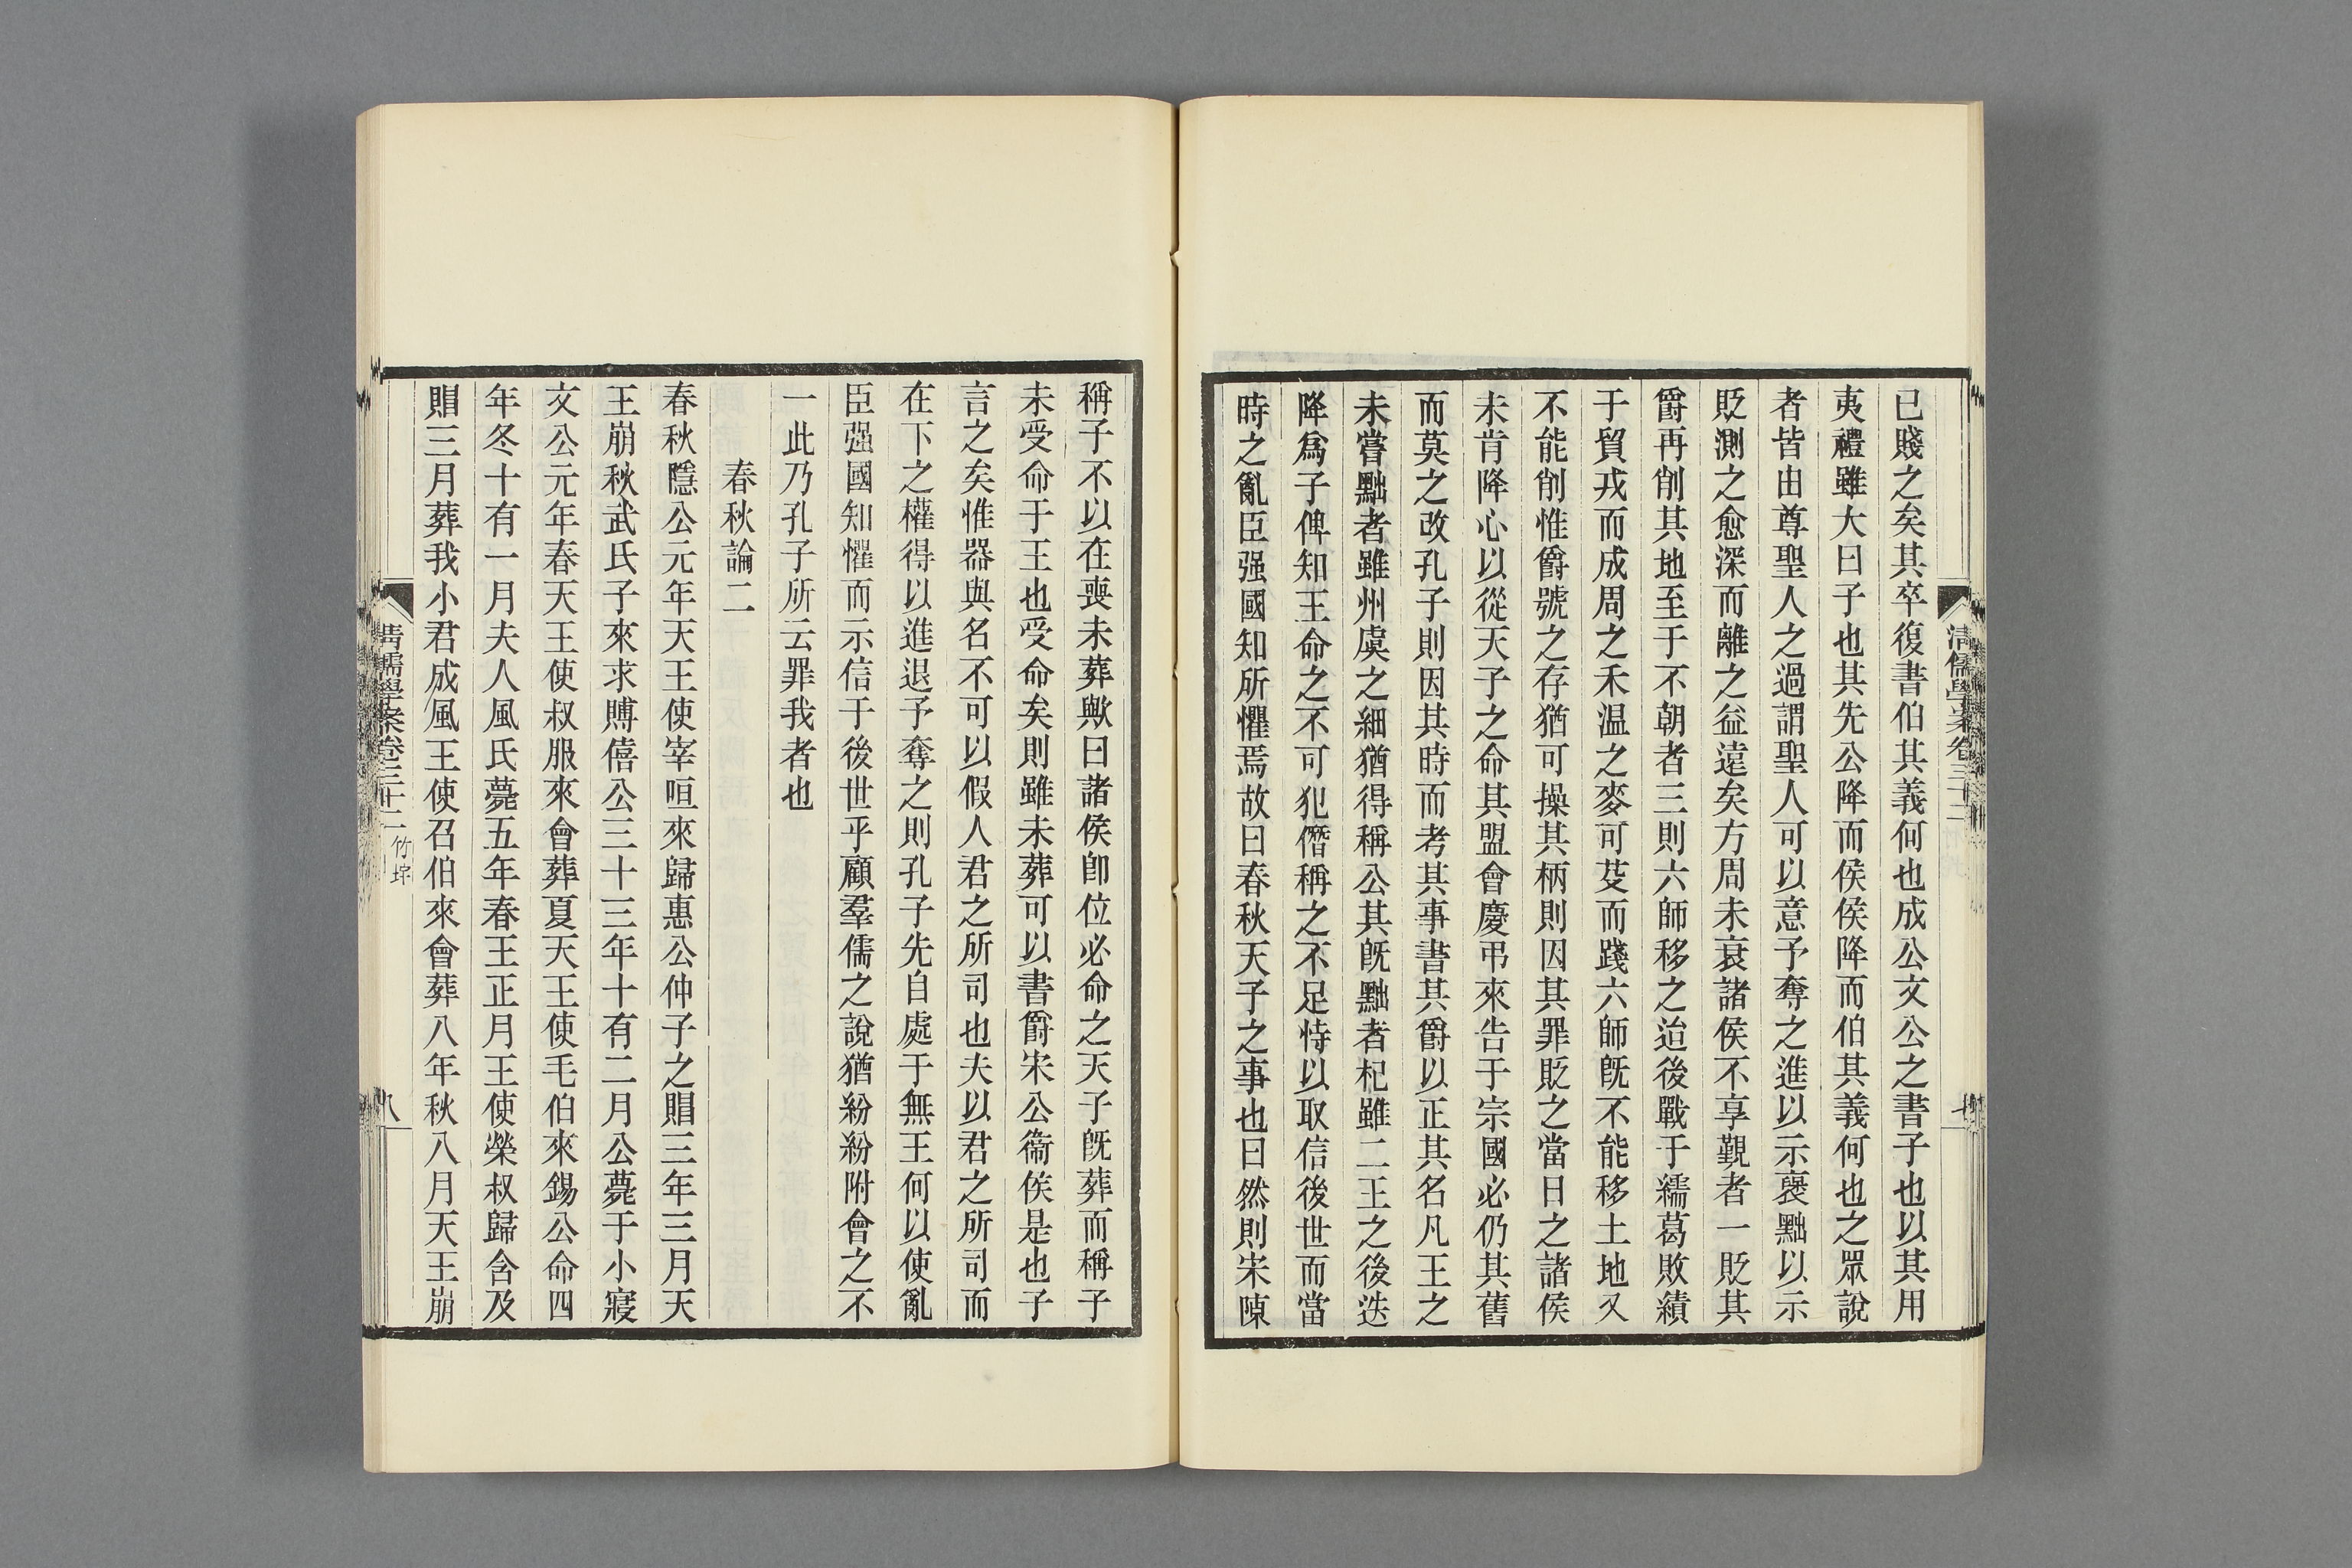 已賤之矣其卒復書伯其義何也成公文公之書子也以其用
夷禮雖大曰子也其先公降而侯侯降而伯其義何也之眾說
者皆由尊聖人之過謂聖人可以意予奪之進以示襃黜以示
貶測之愈深而離之益遠矣方周未衰諸侯不享覲者一貶其
爵再削其地至于不朝者三則六師移之迨後戰于繻葛敗績
于貿戎而成周之禾温之麥可芟而踐六師既不能移土地又
不能削惟爵號之存猶可操其柄則因其罪貶之當日之諸侯
未肯降心以從天子之命其盟會慶弔來告于宗國必仍其舊
而莫之改孔子則因其時而考其事書其爵以正其名凡王之
未嘗黜者雖州虞之細猶得稱公其既黜者杞雖二王之後迭
降爲子俾知王命之不可犯僭稱之不足恃以取信後世而當
時之亂臣强國知所懼焉故曰春秋天子之事也曰然則宋陳
清儒學案卷三十二
七
稱子不以在喪未葬歟曰諸侯卽位必命之天子既葬而稱子
未受命于王也受命矣則雖未葬可以書爵宋公衞侯是也子
言之矣惟器與名不可以假人君之所司也夫以君之所司而
在下之權得以進退予奪之則孔子先自處于無王何以使亂
臣强國知懼而示信于後世乎顧羣儒之說猶紛紛附會之不
一此乃孔子所云罪我者也
春秋論二
春秋隱公元年天王使宰咺來歸惠公仲子之賵三年三月天
王崩秋武氏子來求賻僖公三十三年十有二月公薨于小寢
文公元年春天王使叔服來會葬夏天王使毛伯來錫公命四
年冬十有一月夫人風氏薨五年春王正月王使榮叔歸含及
賵三月葬我小君成風王使召伯來會葬八年秋八月天王崩
清儒學案卷三十二
竹垞
八